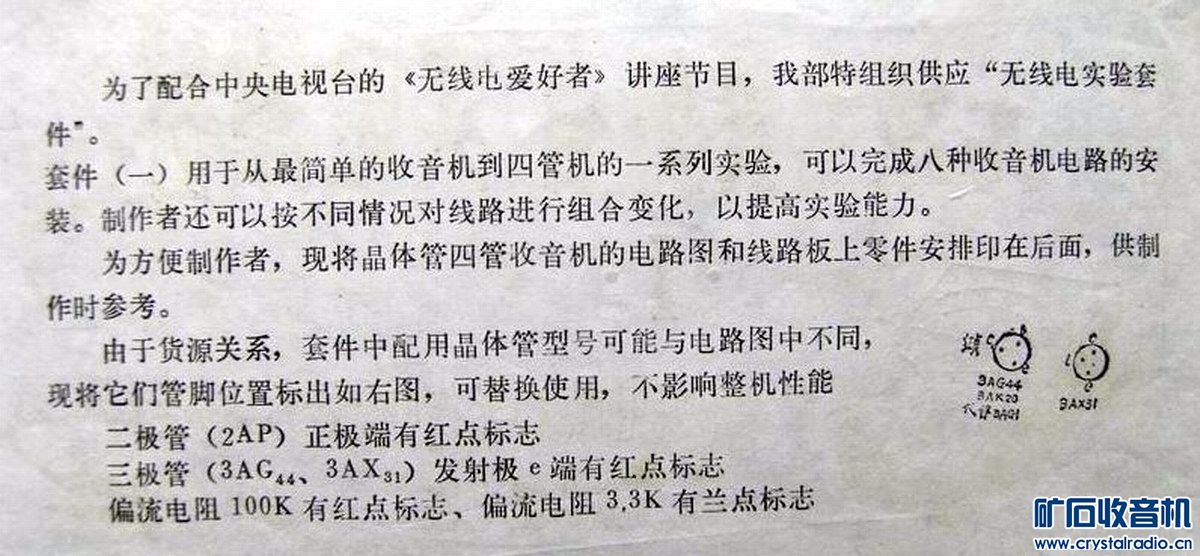 为了配合中央电视台的《无线电爱好者》讲座节目，我部特组织供应“无线电实验套
件”。
套件（一）用于从最简单的收音机到四管机的一系列实验，可以完成八种收音机电路的安
装。制作者还可以按不同情况对线路进行组合变化，以提高实验能力。
为方便制作者，现将晶体管四管收音机的电路图和线路板上零件安排印在后面，供制
作时参考。
由于货源关系，套件中配用晶体管型号可能与电路图中不同，
现将它们管脚位置标出如右图，可替换使用，不影响整机性能
二极管（2AP）正极端有红点标志
三极管（3AG44、3AX31）发射极 e 端有红点标志
偏流电阻 100K 有红点标志、偏流电阻 3.3K 有兰点标志
c e
3AG44
3AK20
3AG1
c e
3AX31
矿石收音机
www.crystalradio.cn